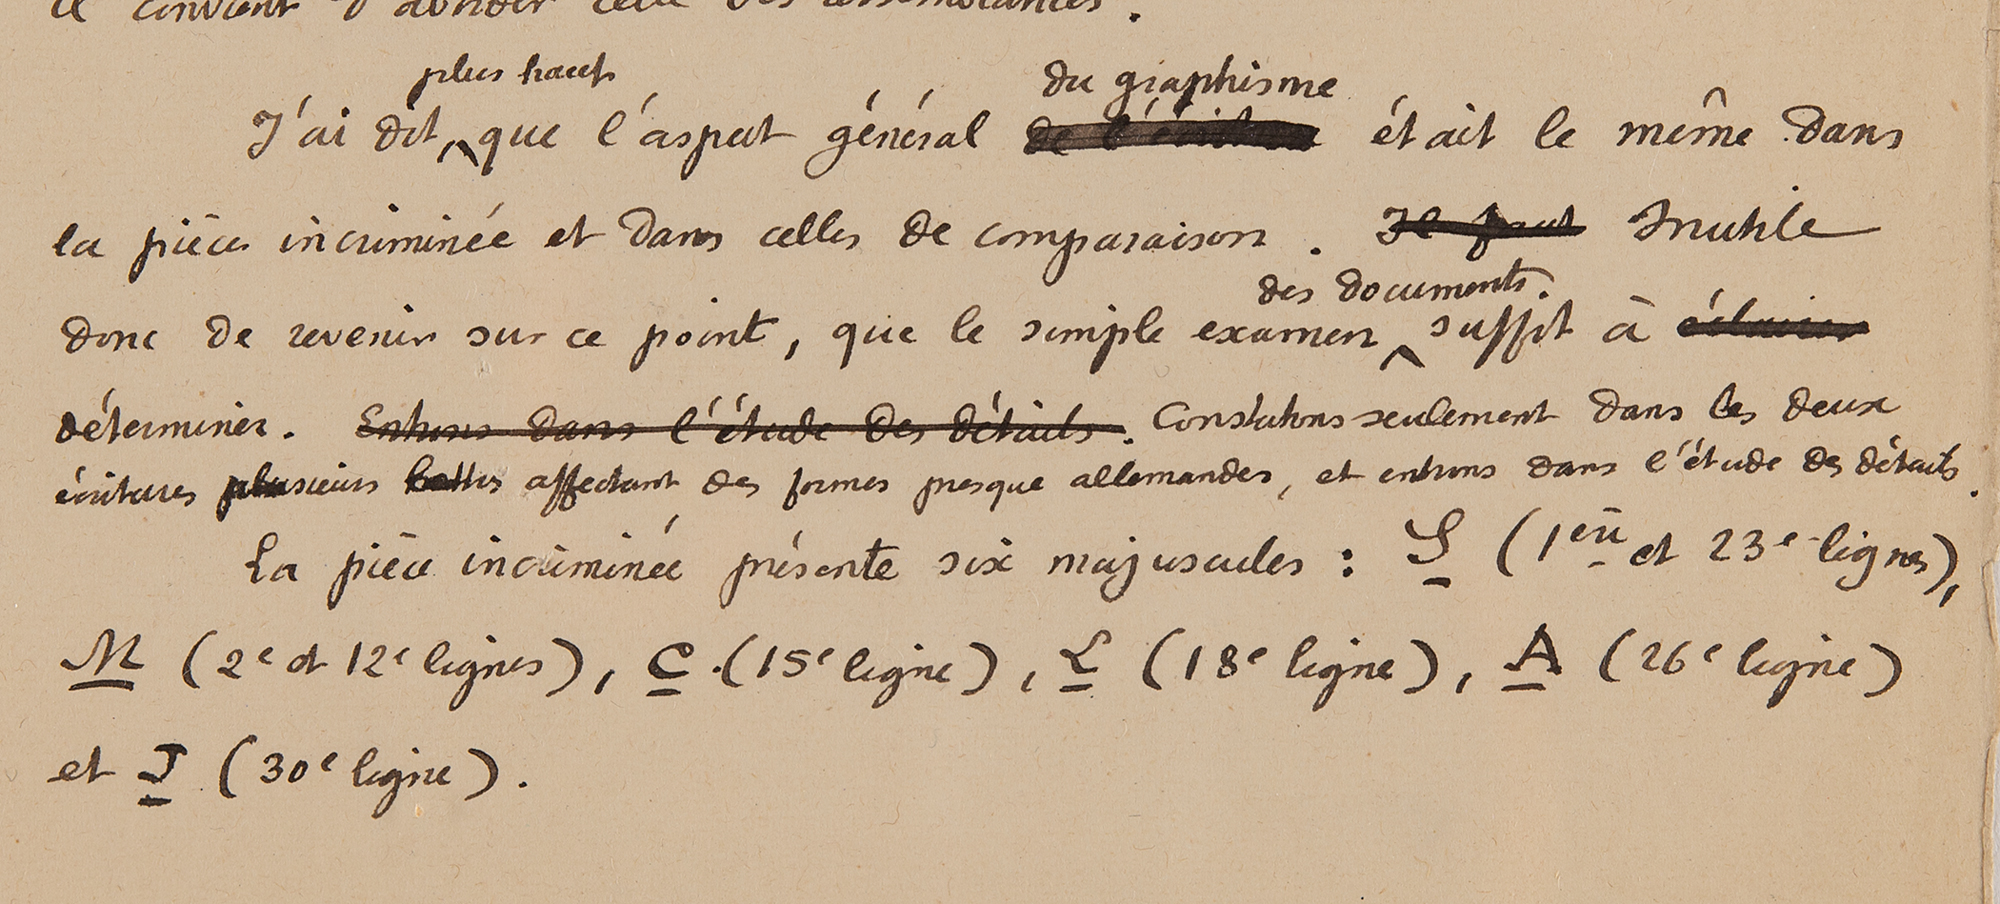 il convient d'aborder celle des ressemblances.
plus haut du graphisme
J'ai dit, que l'aspect général de l'écriture était le même dans
la pièce incriminée et dans celles de comparaison. Il faut Inutile
des documents.
donc de revenir sur ce point, que le simple examen suffit à éclairer
déterminer. Entrons dans l'étude des détails. Constatons seulement dans les deux
écritures plusieurs lettres affectant des formes presque allemandes, et entrons dans l'étude des détails.
La pièce incriminée présente six majuscules : S (1ère et 23e lignes),
M (2e et 12e lignes), C (15e ligne), L (18e ligne), A (26e ligne)
et J (30e ligne).